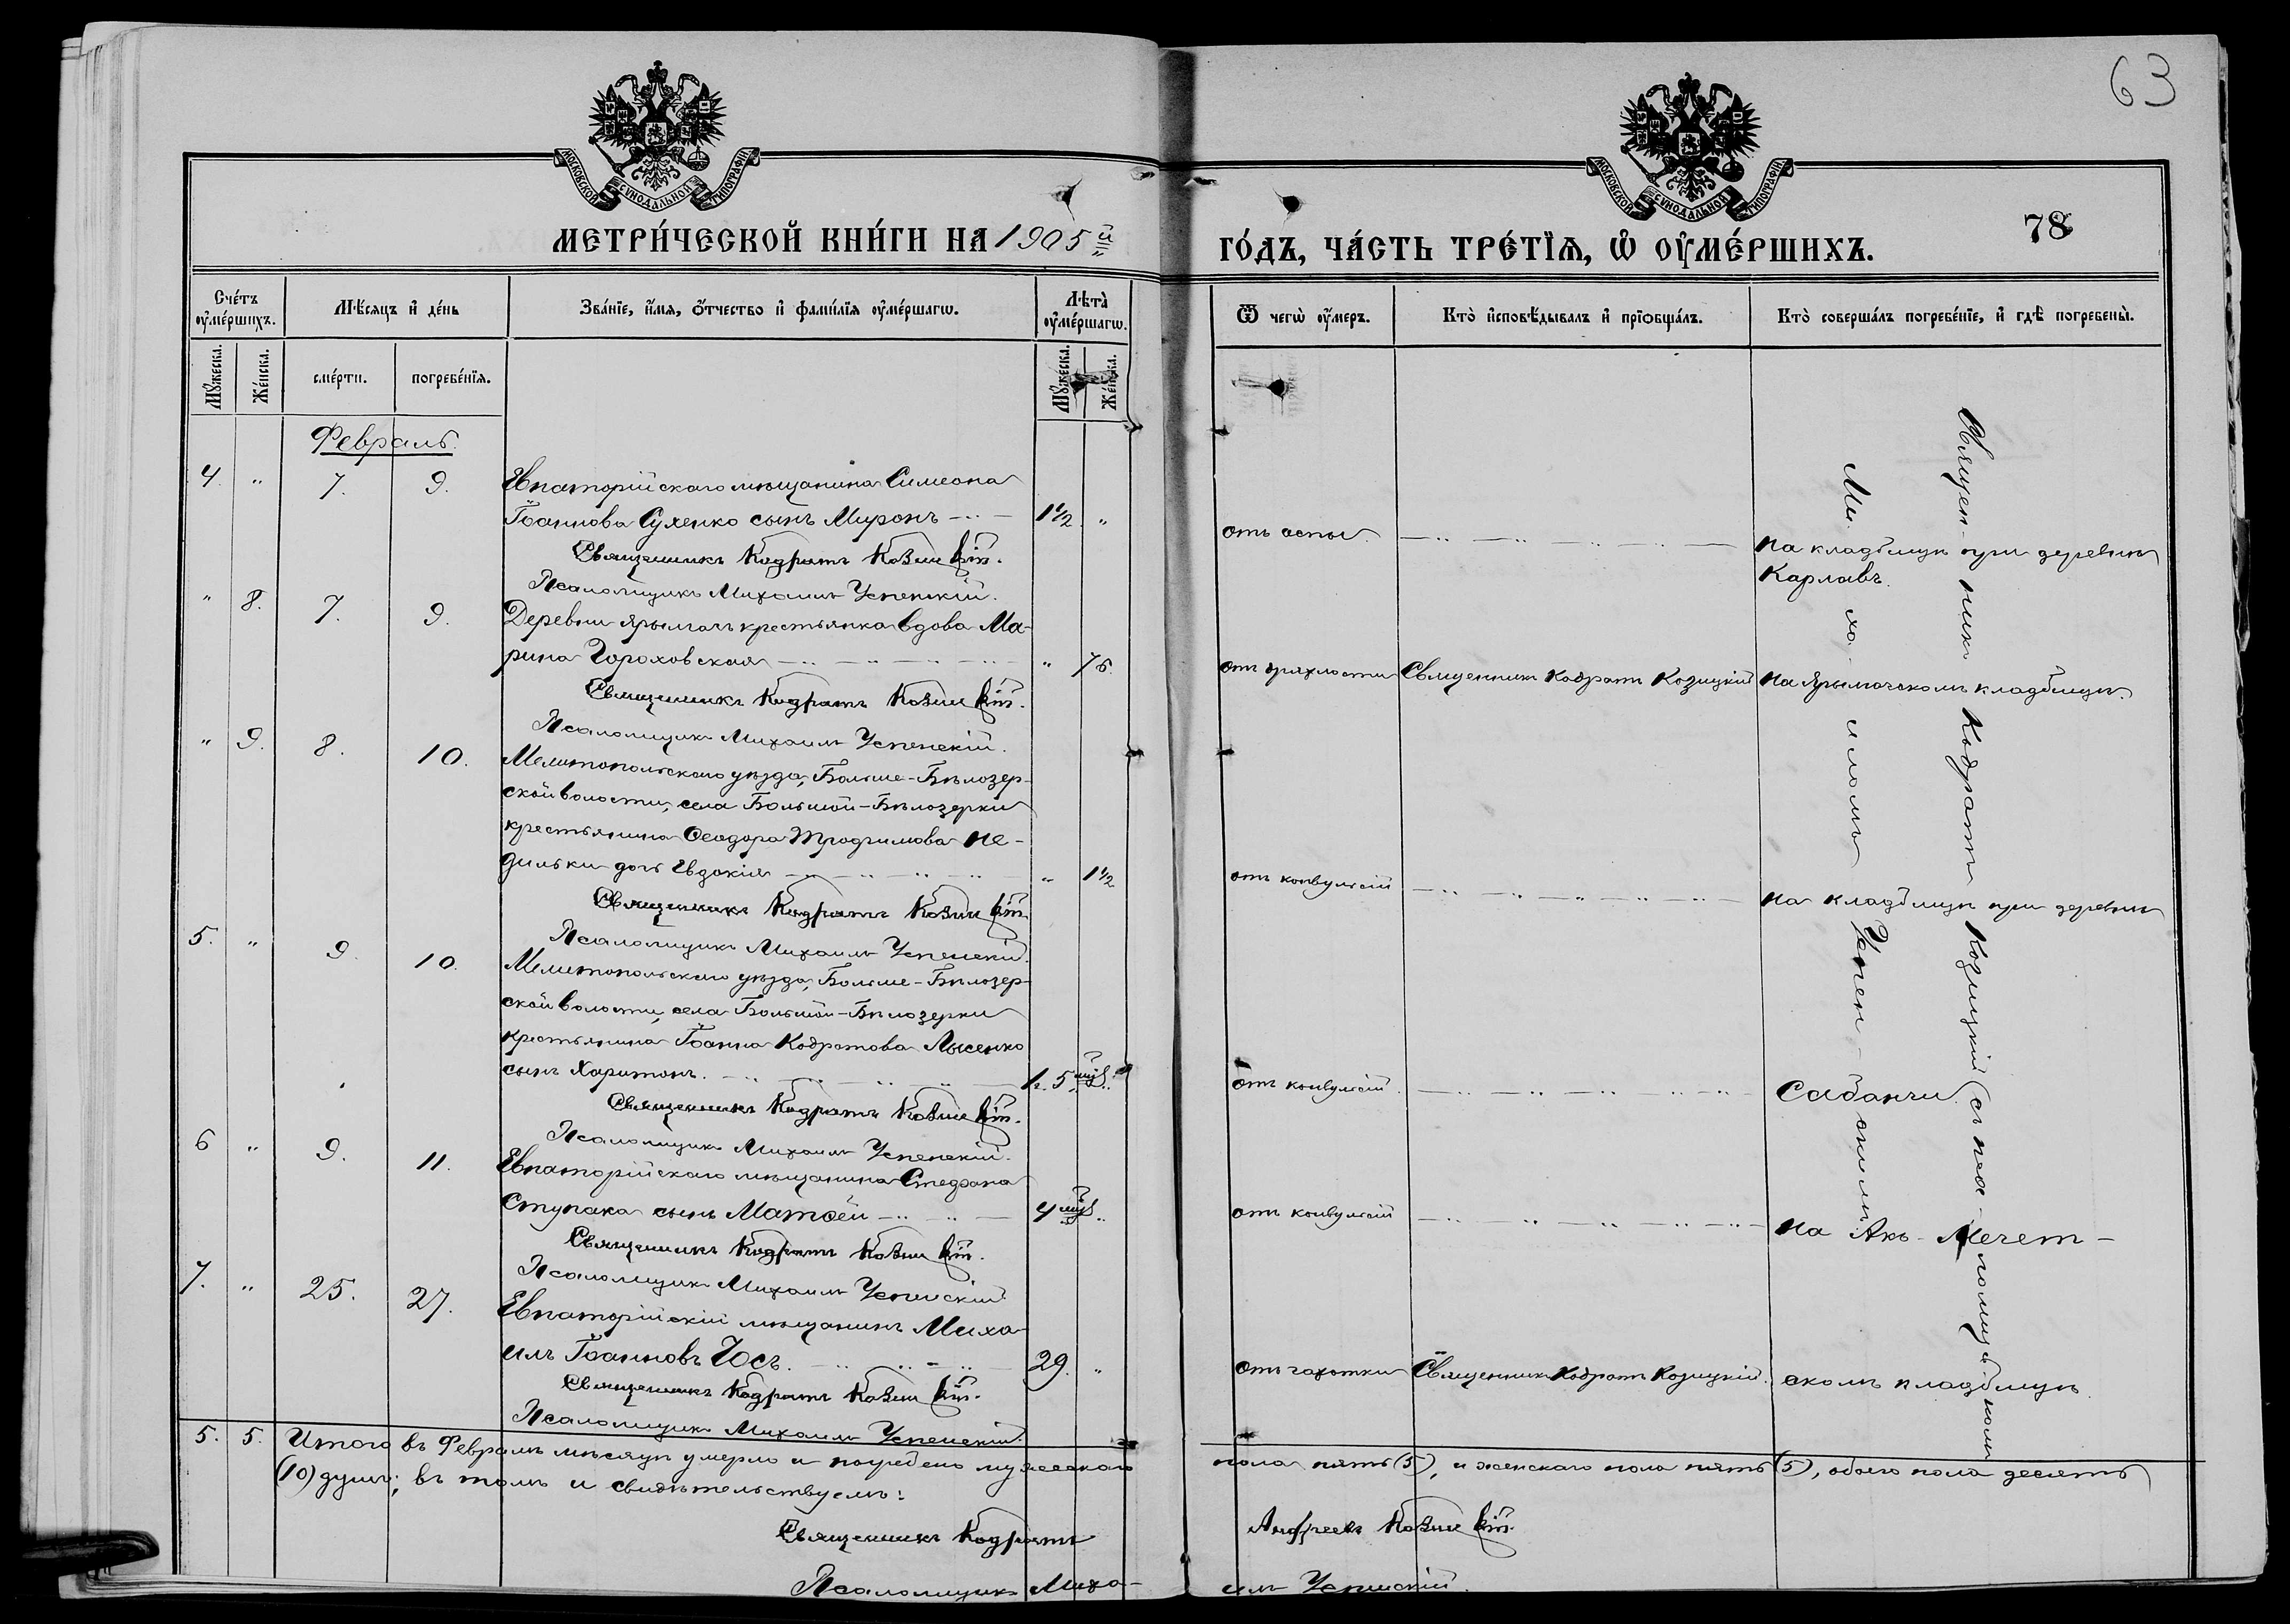 63
МОСКОВСКОЙ СѴНОДАЛЬНОЙ ТИПОГРАФІИ
МОСКОВСКОЙ СѴНОДАЛЬНОЙ ТИПОГРАФІИ
МЕТРИ́ЧЕСКОЙ КНИ́ГИ НА 1905й
ГО́ДЪ, ЧА́СТЬ ТРЕ́ТЇѦ, Ѡ҆ ОУ҆МЕ́РШИХЪ.
78
Сче́тъ оу҆ме́ршихъ.
Мѣ́сяцъ и҆ де́нь
Зва́нїе, и҆́мя, ѻ҆́тчество и҆ фами́лїя оу҆ме́ршагѡ.
Лѣ́та оу҆ме́ршагѡ.
Ѿ чегѡ̀ оу҆́меръ.
Кто̀ и҆сповѣ́дывалъ и҆ прїѡбща́лъ.
Кто̀ соверша́лъ погребе́нїе, и҆ гдѣ̀ погребены̀.
Мꙋ́жеска.
Же́нска.
сме́рти.
погребе́нїя.
Мꙋ́жеска.
Же́нска.
Февраль.
4. " 7. 9. Евпаторійскаго мѣщанина Симеона
Іоаннова Сухенко сынъ Миронъ 1½ " отъ оспы. На кладбищѣ при деревнѣ
Карлавъ.
Священникъ Кодратъ Козицкій.
Псаломщикъ Михаилъ Успенскій.
" 8. 7. 9. Деревни Ярылгачъ крестьянка вдова Ма-
рина Гороховская " 76. отъ дряхлости Священникъ Кодратъ Козицкій На Ярылгачскомъ кладбищѣ.
Священникъ Кодратъ Козицкій.
Псаломщикъ Михаилъ Успенскій.
" 9. 8. 10. Мелитопольскаго уѣзда, Больше-Бѣлозер-
ской волости, села Большой-Бѣлозерки
крестьянина Ѳеодора Трофимова Не-
дильки дочь Евдокія " 1½ отъ конвульсій На кладбищѣ при деревнѣ
Священникъ Кодратъ Козицкій
Псаломщикъ Михаилъ Успенскій.
5. " 9. 10. Мелитопольскаго уѣзда, Больше-Бѣлозер-
ской волости, села Большой-Бѣлозерки
крестьянина Іоанна Кодратова Лысенко
сынъ Харитонъ. 1г. 5 мцъ. отъ конвульсій. Сабанчи.
Священникъ Кодратъ Козицкій.
Псаломщикъ Михаилъ Успенскій.
6 " 9. 11. Евпаторійскаго мѣщанина Стефана
Ступака сынъ Матѳей 4 мцъ. " отъ конвульсій На Акъ-Мечет-
Священникъ Кодратъ Козицкій.
Псаломщикъ Михаилъ Успенскій
7. " 25. 27. Евпаторійскій мѣщанинъ Миха-
илъ Іоанновъ Гось. 29. " отъ чахотки Священникъ Кодратъ Козицкій. скомъ кладбищѣ.
Священникъ Кодратъ Козицкій.
Псаломщикъ Михаилъ Успенскій.
Священникъ Кодратъ Козицкій съ псаломщикомъ
Михаиломъ Успенскимъ.
5. 5. Итого въ Февралѣ мѣсяцѣ умерло и погребено мужескаго пола пять (5), и женскаго пола пять (5), обоего пола десять
(10) душъ; въ томъ и свидѣтельствуемъ:
Священникъ Кодратъ Андреевъ Козицкій.
Псаломщикъ Михаилъ Успенскій.